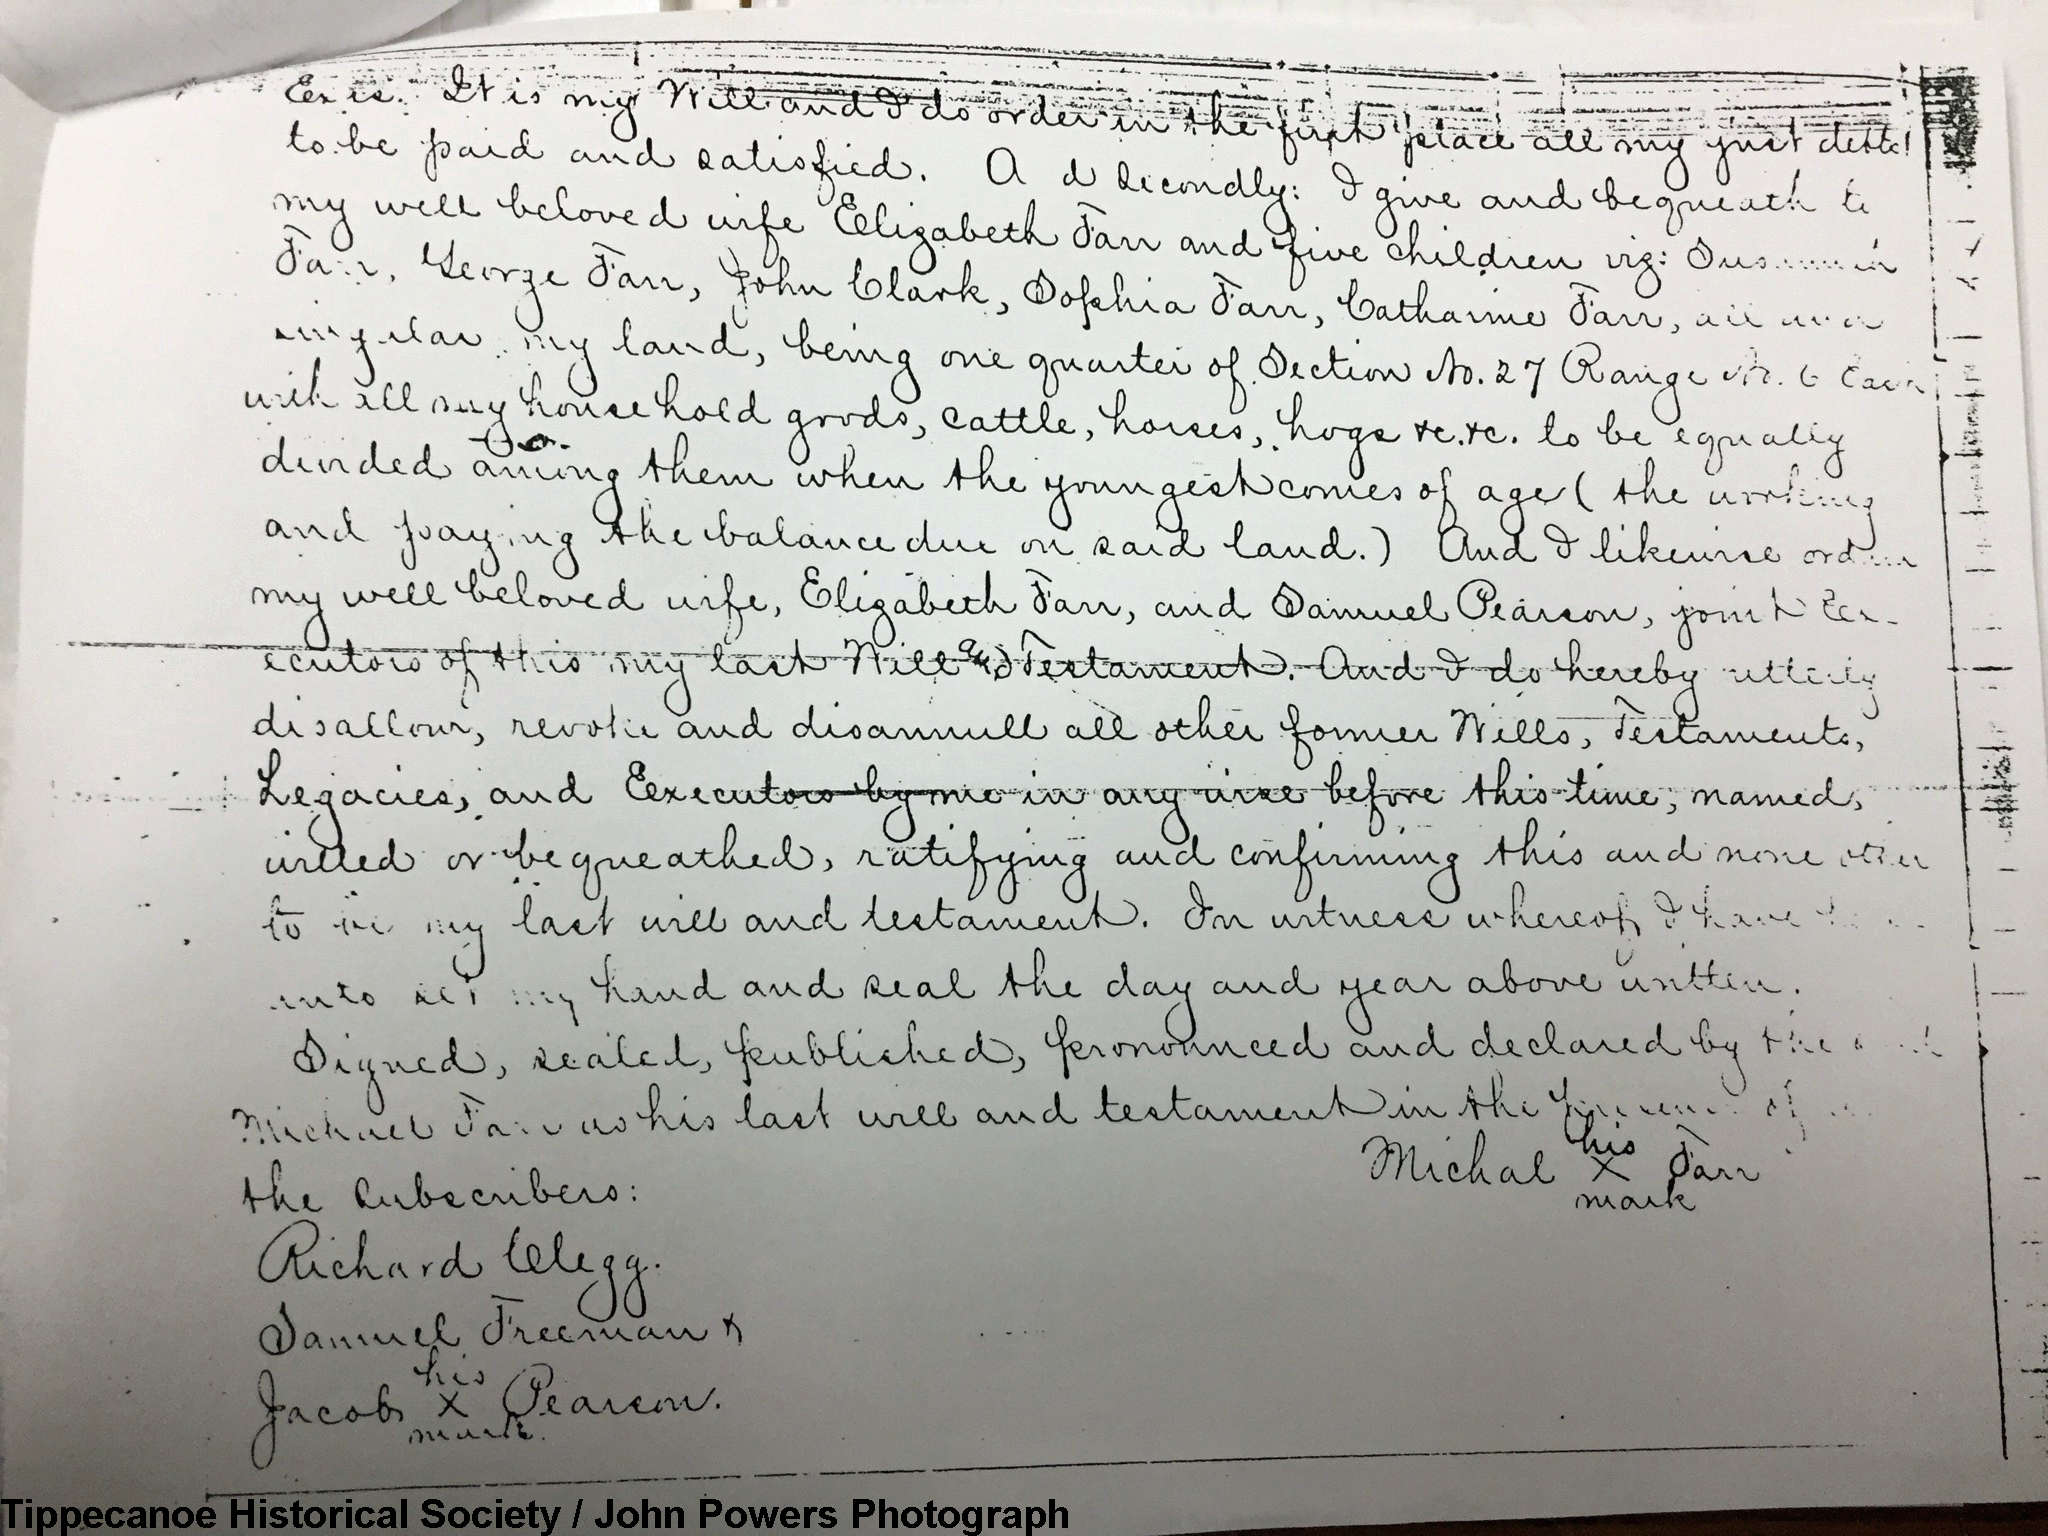 It is my Will and I do order in the first place all my just debts
to be paid and satisfied. A d secondly: I give and bequeath to
my well beloved wife Elizabeth Farr and five children viz:
Farr, George Farr, John Clark, Sophia Farr, Catharine Farr, all and
singular my land, being one quarter of Section No. 27 Range No. 6
with all my household goods, cattle, horses, hogs &c. &c. to be equally
divided among them when the youngest comes of age (the working
and paying the balance due on said land.) And I likewise
my well beloved wife, Elizabeth Farr, and Samuel Pearson, joint Ex-
ecutors of this my last Will and Testament. And I do hereby utterly
disallow, revoke and disannull all other former Wills, Testaments,
Legacies, and Eexecutors by me in any wise before this time, named,
willed or bequeathed, ratifying and confirming this and none other
to be my last will and testament. In witness whereof I have
unto set my hand and seal the day and year above written.
Signed, sealed, published, pronounced and declared by the
Michael Farr as his last will and testament in the presence of
the subscribers:
Michal his X mark Farr
Richard Clegg.
Samuel Freeman
Jacob his X mark Pearson.
Tippecanoe Historical Society / John Powers Photograph